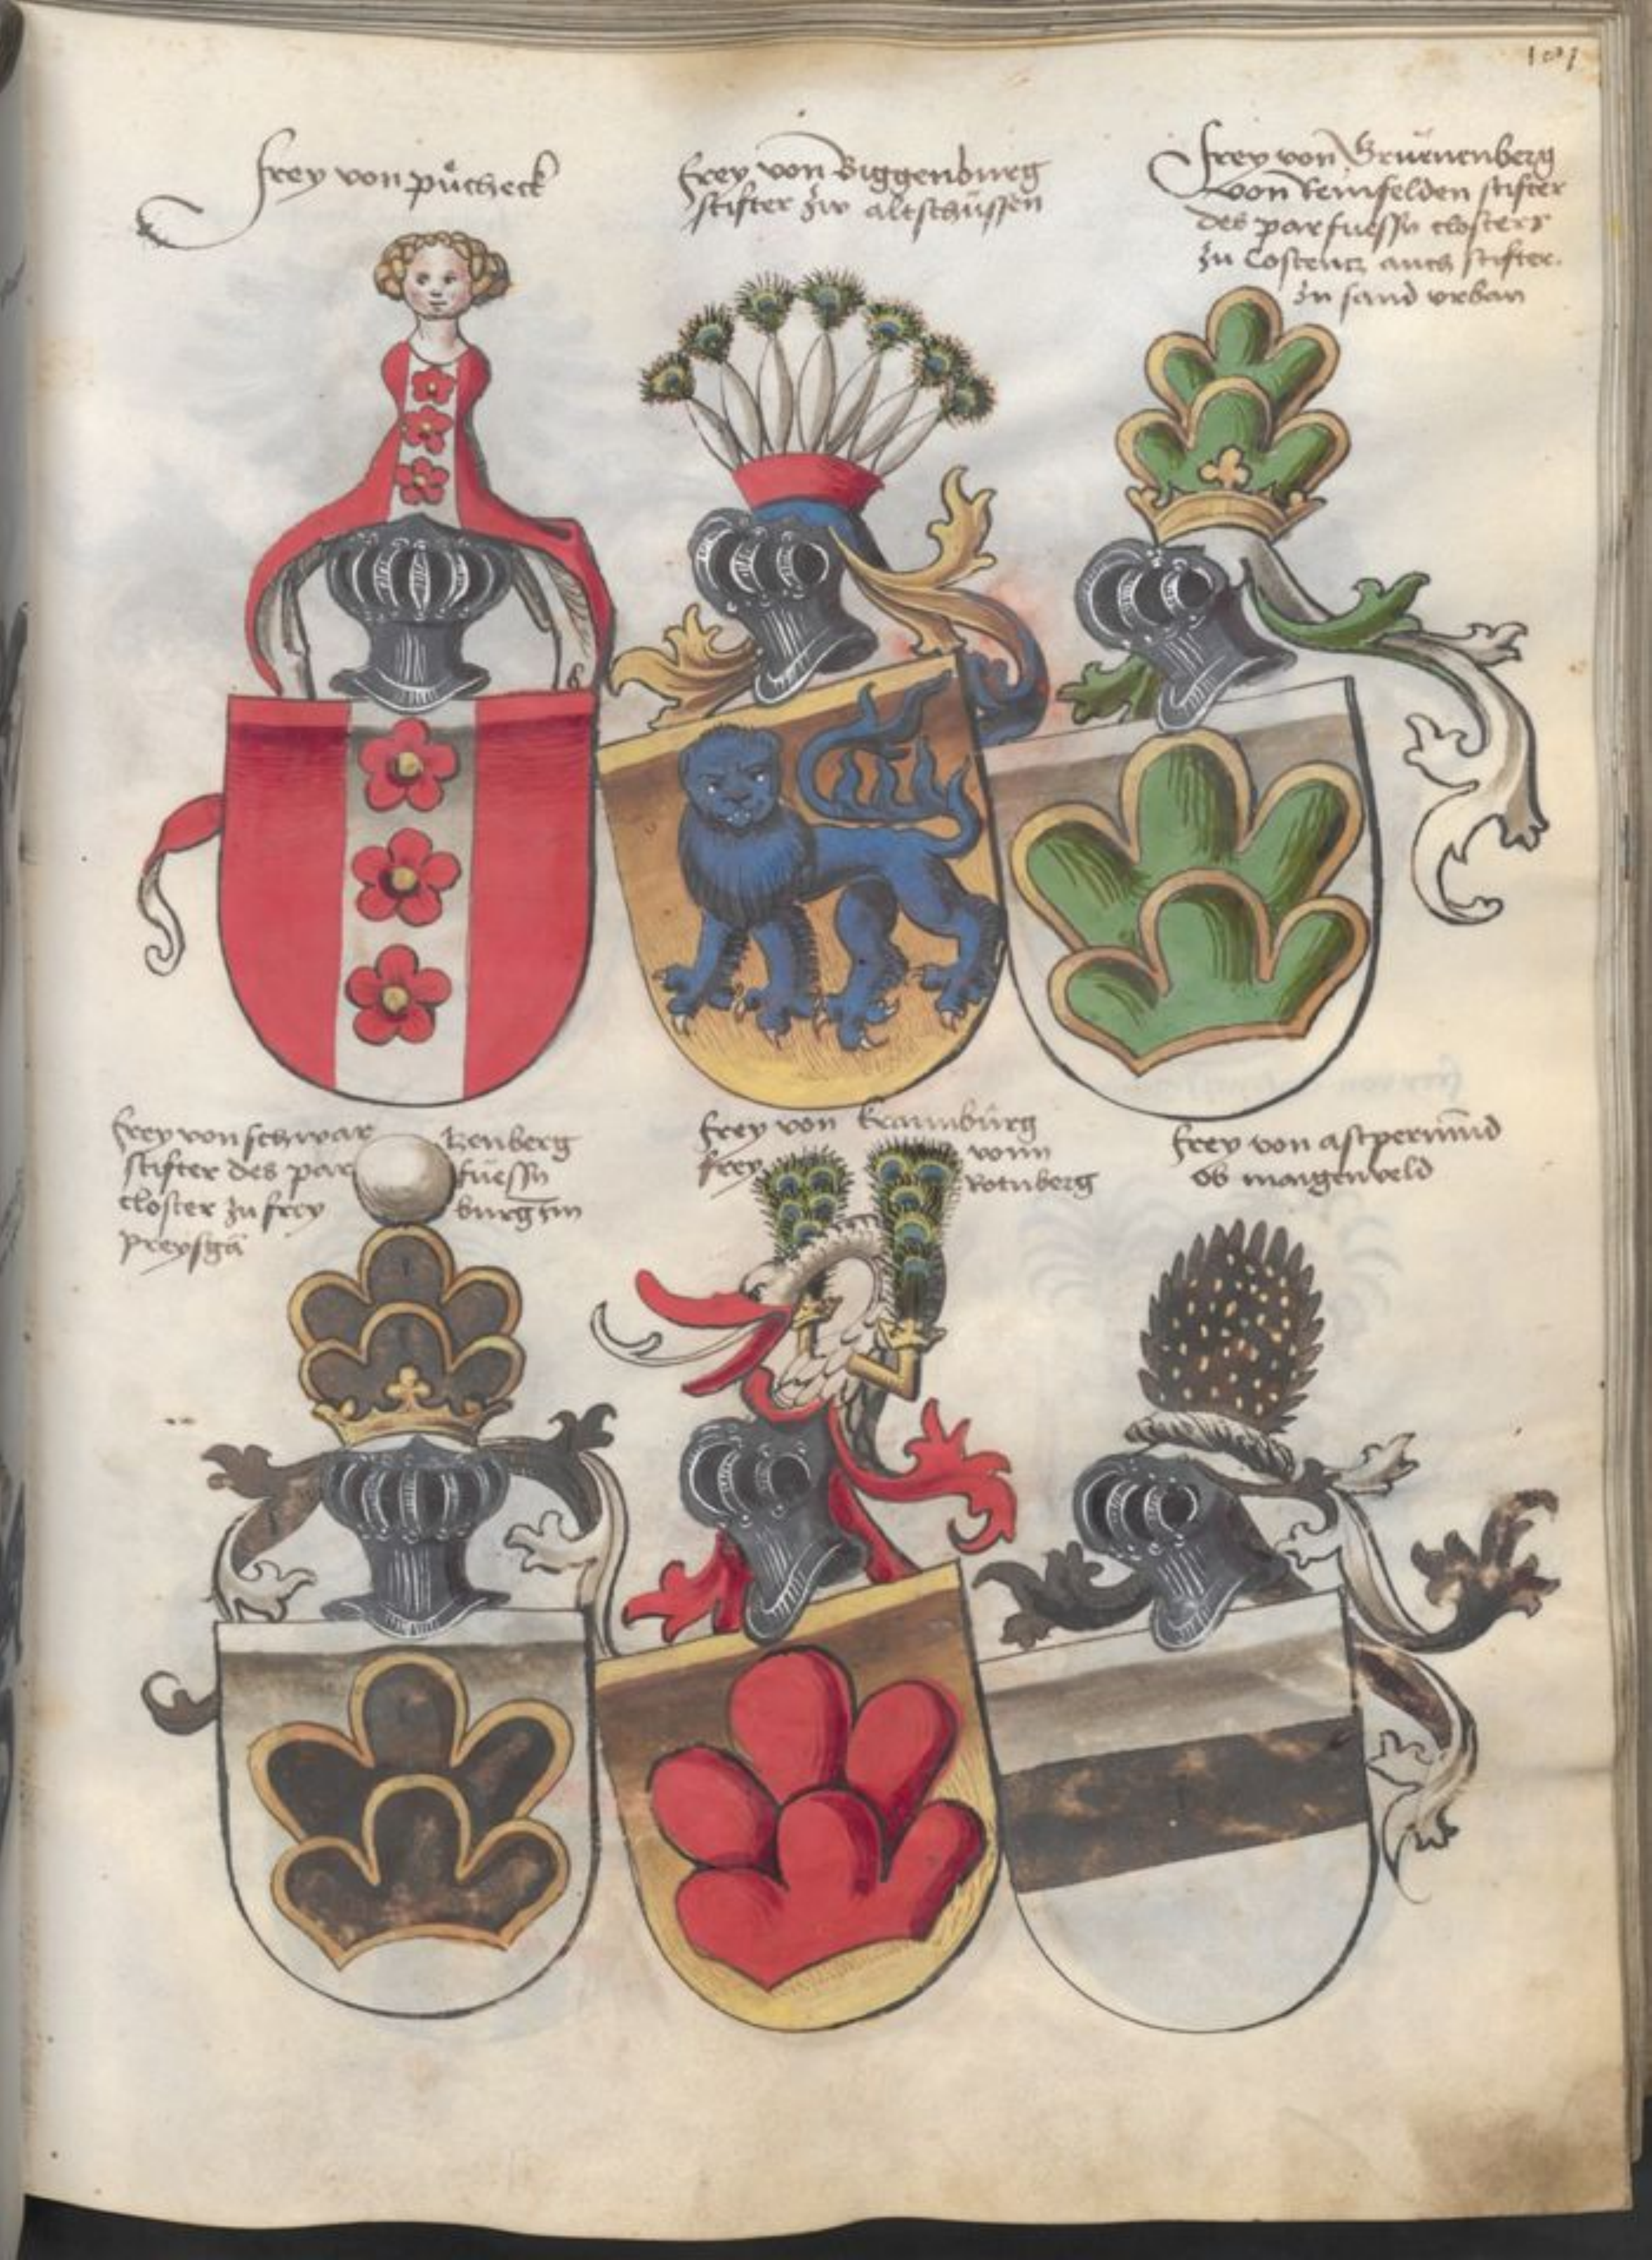 101
frey von půcheck
frey von Biggenburg
stifter zw altschüssen
frey von Gruenenberg
von Reinfelden stifter
des parfuessn closters
zu Costentz auch stifter
zu sand vrban
frey von schwartzenberg
stifter des parfuessn
closter zu freyburg im
Preysgä
frey von kramburg
frey vonn
Rotnberg
frey von astpermund
ob maigenveld